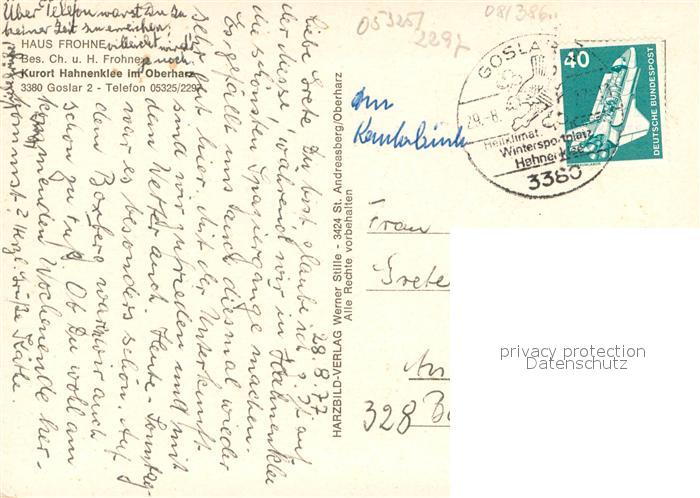 Über Telefon warst Du zu
keiner Zeit zu erreichen,
vielleicht wird's
noch.
HAUS FROHNE
Bes. Ch. u. H. Frohne
Kurort Hahnenklee im Oberharz
3380 Goslar 2 - Telefon 05325/2297
28.8.77
Liebe Grete, Du bist glaube ich z. Zt. auf
der Messe, während wir in Hahnenklee
die schönsten Spaziergänge machen.
Es gefällt uns auch diesmal wieder
sehr gut hier. Mit der Unterkunft
sind wir zufrieden und mit
dem Wetter auch. Heute - Sonntag -
war es besonders schön. Auf
dem Bocksberg waren wir auch
schon zu Fuß. Ob Du wohl am
kommenden Wochenende her-
kommst? Herzl. Grüße Käthe
HARZBILD-VERLAG Werner Stille - 3424 St. Andreasberg/Oberharz
Alle Rechte vorbehalten
05325/
2297
081386
GOSLAR
29.-8.
Heilklimat.
Wintersportplatz
Hahnenklee
3380
40
DEUTSCHE BUNDESPOST
Frau
Grete
328
privacy protection
Datenschutz